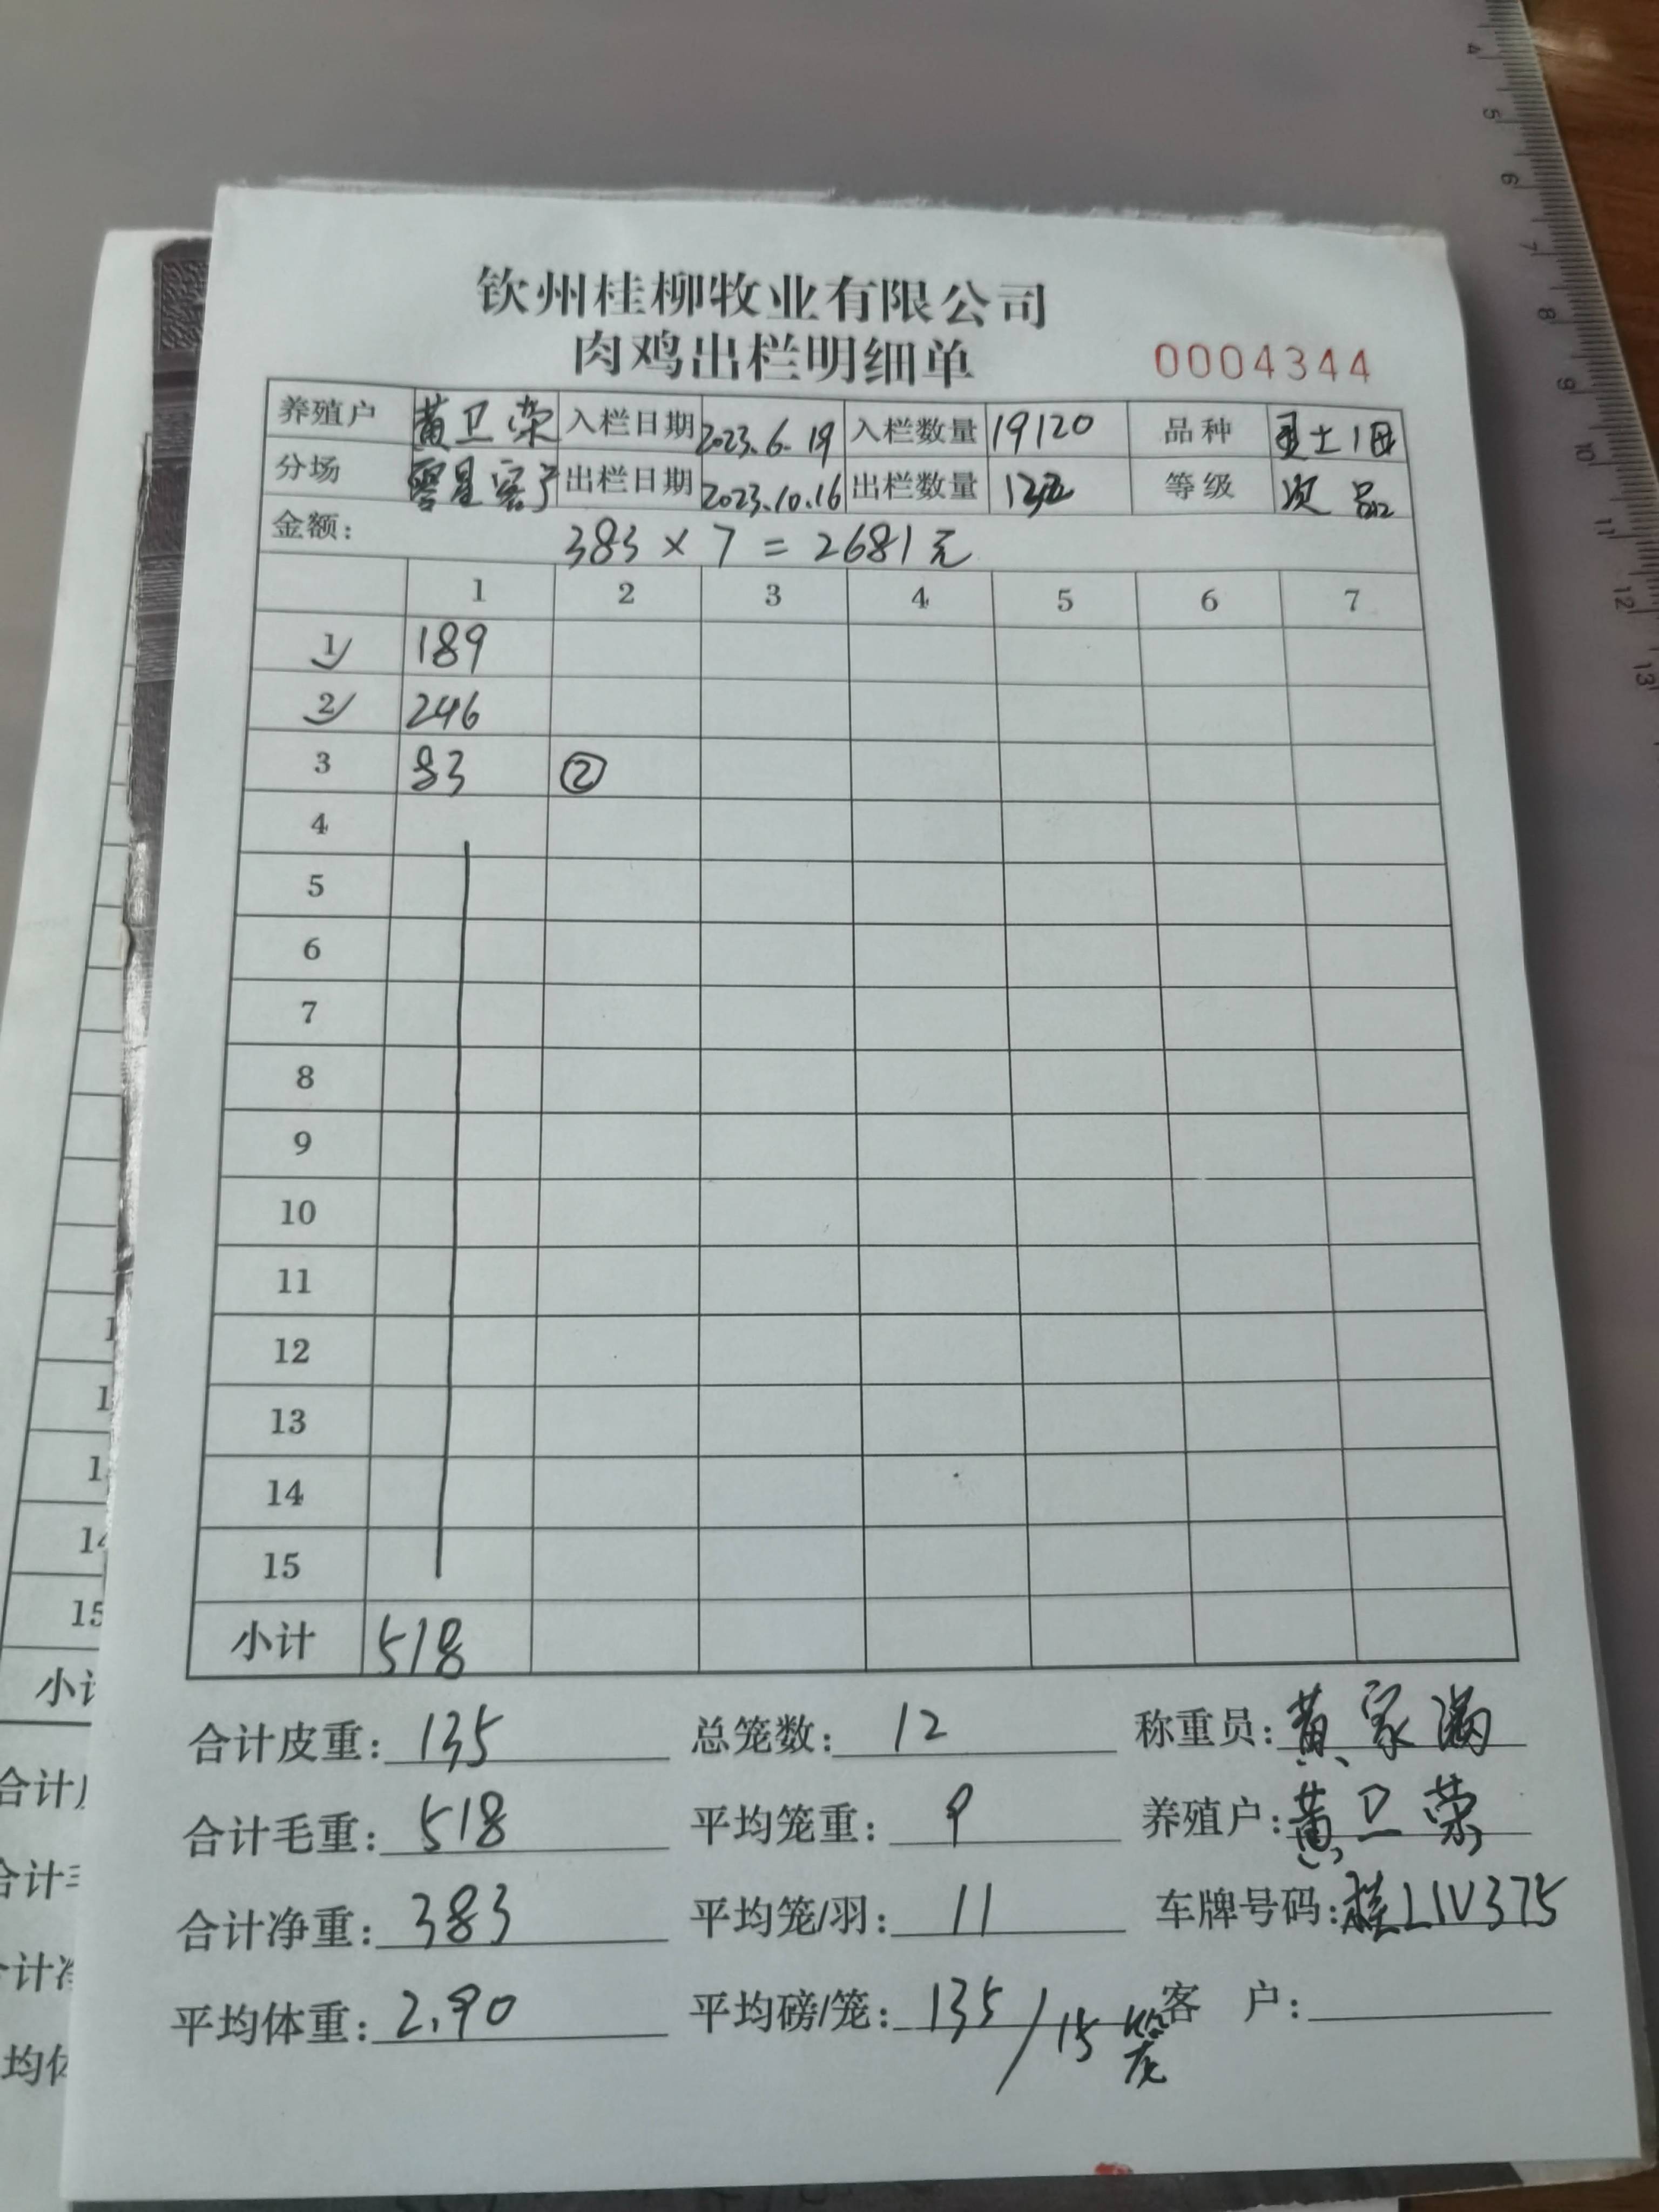 钦州桂柳牧业有限公司
肉鸡出栏明细单 0004344
养殖户 黄卫荣 入栏日期 2023.6.19 入栏数量 19120 品种 勇士1母
分场 零星客户 出栏日期 2023.10.16 出栏数量 等级 次品
金额: 383 × 7 = 2681元
1 2 3 4 5 6 7
1 189
2 246
3 83 ②
4
5
6
7
8
9
10
11
12
13
14
15
小计 518
合计皮重: 135 总笼数: 12 称重员: 黄家满
合计毛重: 518 平均笼重: 9 养殖户: 黄卫荣
合计净重: 383 平均笼/羽: 11 车牌号码: 桂L1V375
平均体重: 2.90 平均磅/笼: 135/15笼 客 户:
14
15
小计
合计
合计
均体
4 5 6 7 8 9 10 11 12 13